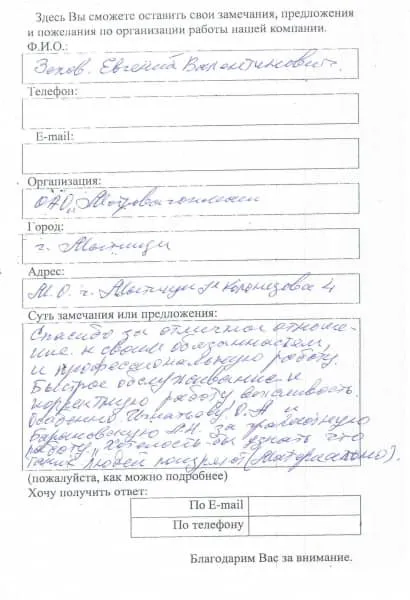 Здесь Вы сможете оставить свои замечания, предложения
и пожелания по организации работы нашей компании.
Ф.И.О.:
Зохов. Евгений Валентинович.
Телефон:
E-mail:
Организация:
ОАО „Метровагонмаш
Город:
г. Мытищи
Адрес:
М.О. г. Мытищи ул Колонцова 4
Суть замечания или предложения:
Спасибо за отличное отноше-
ние к своим обязанностям,
и профессиональную работу.
Быстрое обслуживание и
корректную работу вежливость.
Особенно Игнатьову О.А и
Барановскую А.Н. за грамотную
работу. Хотелось бы узнать что
таких людей поощряют (Материально).
(пожалуйста, как можно подробнее)
Хочу получить ответ:
По E-mail
По телефону
Благодарим Вас за внимание.